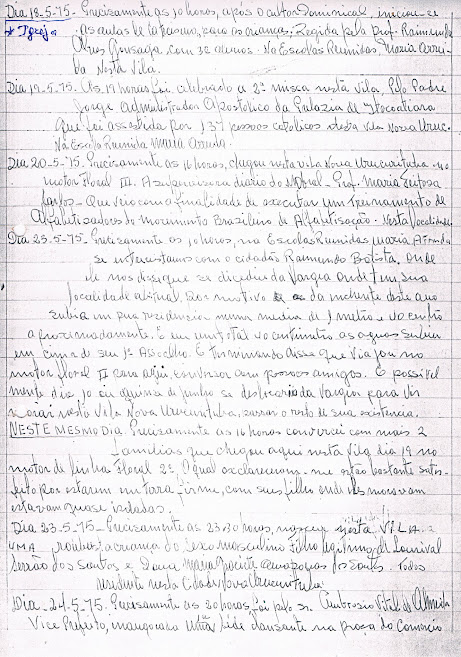 Dia 18-5-75 - Precisamente as 10 horas, após o culto Dominical, iniciou-se
* Igreja
as aulas de para as crianças. Regida pela prof. Raimunda
Alves Gonzaga com 32 alunos. Na Escolas Reunidas Maria Arru-
da Nesta Vila.
Dia 19-5-75. As 19 horas foi celebrado a 2ª missa nesta vila. Pelo Padre
Jorge Administrador Apostolico da Prelazia de Itacoatiara
que foi assistida por 137 pessoas catolicos desta vila Nova Uruc.
Na Escola Reunida Maria Arruda.
Dia 20-5-75. Precisamente as 16 horas, chegou nesta vila Nova Urucurituba - no
motor Floral III. A supervisora do Mobral - Prof. Maria
- Que veio com a finalidade de executar um treinamento de
Alfabetizadores do Movimento Brasileiro de Alfabetisação. Nesta localidade.
Dia 25-5-75. Precisamente as 10 horas, na Escolas Reunidas Maria Arruda
se entrevistamos com o cidadão Raimundo Batista, onde
ele nos disse que se da Vargea onde tem sua
localidade Por motivo da enchente deste ano
subir em sua residencia numa media de 1 metro e 20 cento
aproximadamente. E em um total 20 centimetro as aguas subiu
em cima de seu 1º Assoalho. E terminando disse que viajou no
motor floral II para aqui, conversar com poucos amigos. E possivel
mente dia 10 ou quinze de junho se deslocaria da vargea para vir
morar nesta vila Nova Urucurituba, passar o resto de sua existencia.
NESTE MESMO DIA. Precisamente as 16 horas conversei com mais 2
familias que chegou aqui nesta vila dia 19 no
motor de linha Floral 2º. O qual esclareceram-me estão bastante satis-
feito por estarem em terra firme, com seus filho onde eles moravam
estavam quase
Dia 23-5-75 - Precisamente as 23:30 horas, nasceu nesta VILA
UMA robusta criança do sexo masculino filho legitimo de Lourival
dos Santos e Dona Maria dos Santos. Todos
residente nesta Cidade Nova Urucurituba.
Dia - 24-5-75. Precisamente as 20 horas foi pelo sr. Ambrosio Vital de Almeida
Vice Prefeito, inaugurada uma sede dansante na praça do Comercio